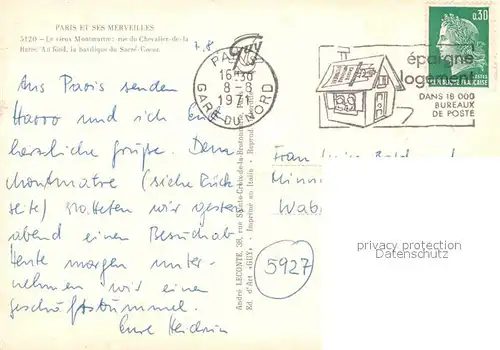 PARIS ET SES MERVEILLES
5120 - Le vieux Montmartre; rue du Chevalier-de-la
Barre. Au fond, la basilique du Sacré-Coeur.
7.8
Guy
PARIS
16H30
8-8
1971
GARE DU NORD
épargne
logement
DANS 18 000
BUREAUX
DE POSTE
0,30
REPUBLIQUE FRANCAISE
Aus Paris senden
Harro und ich Euch
herzliche Grüße. Dem
Montmatre (siehe Rück-
seite) statteten wir gestern
abend einen Besuch ab.
Heute morgen unter-
nehmen wir einen
Geschäftsbummel.
Eure Heidrun
André LECONTE, 38, rue Sainte-Croix-de-la-Bretonnerie
Ed. d'Art «GUY» - Imprimé en Italie
Frau
5927
privacy protection
Datenschutz